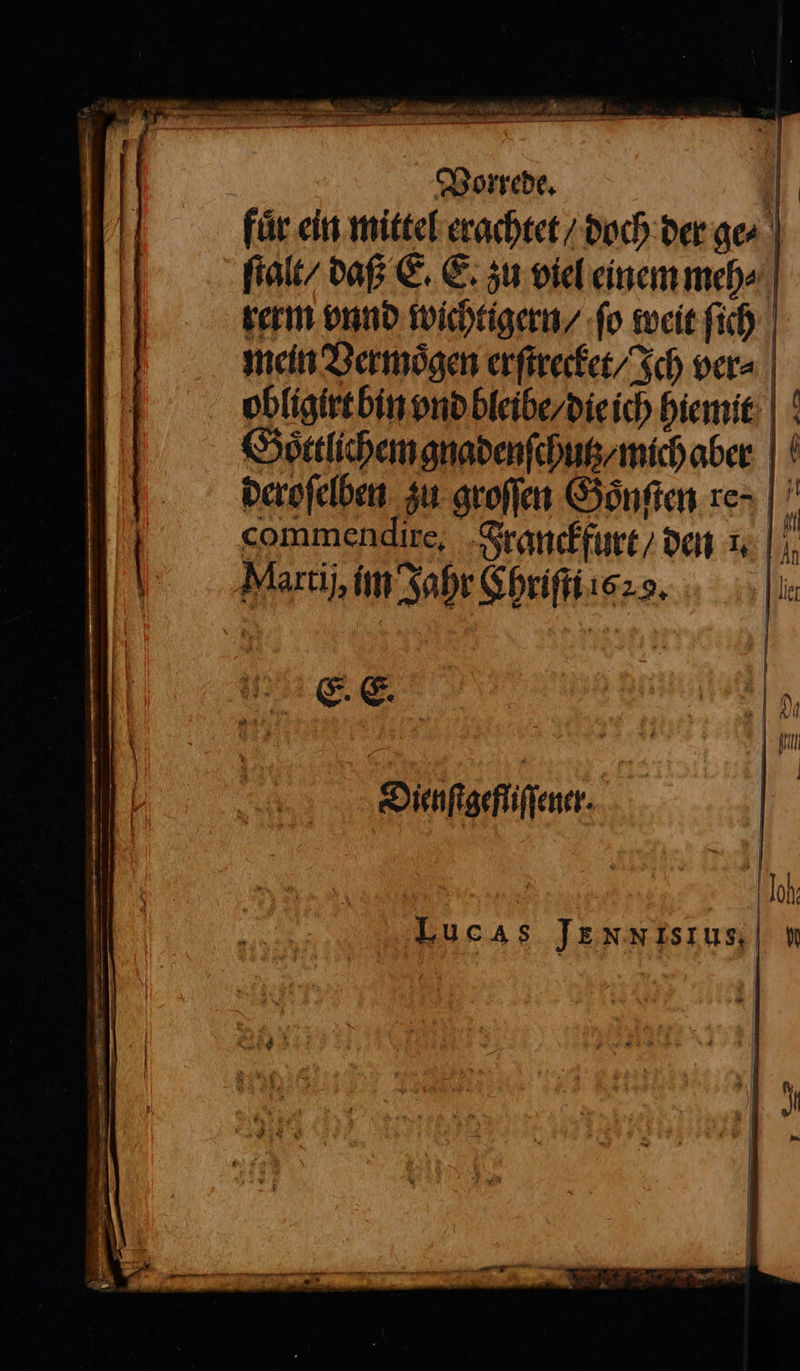 Vorrede.
fuͤr ein mittel erachtet / doch der ge⸗
ſtalt / daß E. E. zu viel einem meh⸗
rerm vnnd wichtigern / ſo weit ſich
mein Vermoͤgen erſtrecket / Ich ver⸗
obligirt bin vnd bleibe / die ich hiemit
Goͤttlichem gnadenſchutz / mich aber
deroſelben zu groſſen Goͤnſten re-
commendire, Franckfurt / den 1.
Martij, im Jahr Chriſti 1629.
E. E.
Dienſtgefliſſener.
Lucas Jennisius.